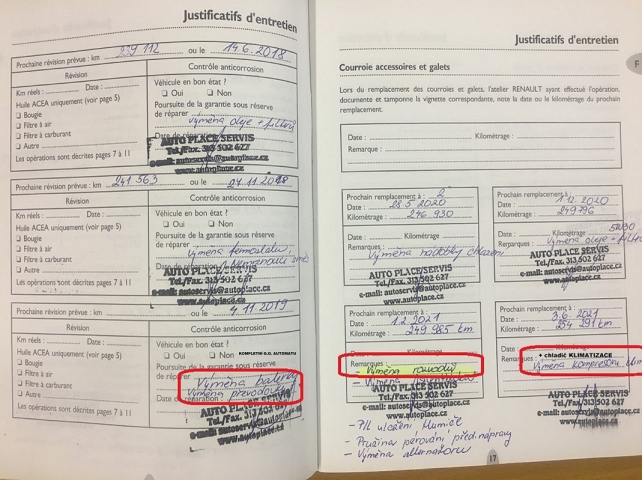 Justificatifs d'entretien
Prochaine révision prévue : km 239 112 ou le 14.6.2018
Révision
Contrôle anticorrosion
Km réels : Date :
Huile ACEA uniquement (voir page 5)
❑ Bougie
❑ Filtre à air
❑ Filtre à carburant
❑ Autre
Les opérations sont décrites pages 7 à 11
Véhicule en bon état ?
❑ Oui ❑ Non
Poursuite de la garantie sous réserve
de réparer výměna oleje + filtrů
AUTO PLACE/SERVIS
Tel./Fax. 313 502 627
e-mail: autoservis@autoplace.cz
www.autoplace.cz
Prochaine révision prévue : km 241 563 ou le
Révision
Contrôle anticorrosion
Km réels : Date :
Huile ACEA uniquement (voir page 5)
❑ Bougie
❑ Filtre à air
❑ Filtre à carburant
❑ Autre
Les opérations sont décrites pages 7 à 11
Véhicule en bon état ?
❑ Oui ❑ Non
Poursuite de la garantie sous réserve
de réparer výměna termostatu,
AUTO PLACE/SERVIS
Tel./Fax. 313 502 627
e-mail: autoservis@autoplace.cz
www.autoplace.cz
Prochaine révision prévue : km ou le 4.11.2019
Révision
Contrôle anticorrosion
Km réels : Date :
Huile ACEA uniquement (voir page 5)
❑ Bougie
❑ Filtre à air
❑ Filtre à carburant
❑ Autre
Les opérations sont décrites pages 7 à 11
Véhicule en bon état ?
KOMPLETNÍ G.O. AUTOMATU
❑ Oui ❑ Non
Poursuite de la garantie sous réserve
de réparer Výměna baterie
Výměna převodovky
Date de réparation :
AUTO PLACE/SERVIS
Tel./Fax. 313 502 627
e-mail: autoservis@autoplace.cz
www.autoplace.cz
Justificatifs d'entretien
F
Courroie accessoires et galets
Lors du remplacement des courroies et galets, l'atelier RENAULT ayant effectué l'opération,
documente et tamponne la vignette correspondante, note la date ou le kilométrage du prochain
remplacement.
Date : Kilométrage :
Remarque :
Prochain remplacement à :
Date : 28.5 2020
Kilométrage : 246 930
Date : Kilométrage :
Remarques : Výměna nádobky chlazení
AUTO PLACE/SERVIS
Tel./Fax. 313 502 627
e-mail: autoservis@autoplace.cz
www.autoplace.cz
Prochain remplacement à :
Date : 1.12.2020
Kilométrage : 249 796
Date : 5W30
Remarques : Výměna oleje + filtrů
AUTO PLACE/SERVIS
Tel./Fax. 313 502 627
e-mail: autoservis@autoplace.cz
www.autoplace.cz
Prochain remplacement à :
Date : 1.2.2021
Kilométrage : 249 985 km
Date Kilométrage
Remarques :
- Výměna rozvodů
- Výměna
AUTO PLACE/SERVIS
Tel./Fax. 313 502 627
e-mail: autoservis@autoplace.cz
www.autoplace.cz
- Pružina pérování před. nápravy
- Výměna alternátoru
Prochain remplacement à :
Date : 3.6 2021
Kilométrage : 254 291 km
Date : Kilométrage :
Remarques : + chladic KLIMATIZACE
Výměna kompresoru klim
AUTO PLACE/SERVIS
Tel./Fax. 313 502 627
e-mail: autoservis@autoplace.cz
www.autoplace.cz
17